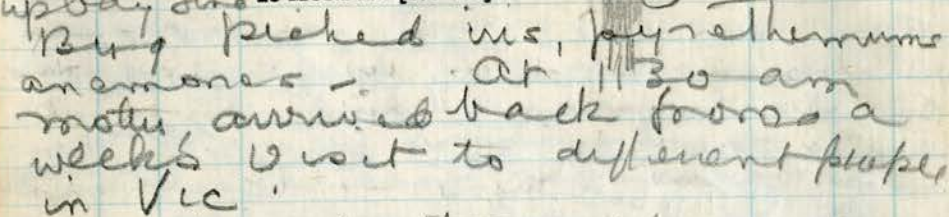 Bug picked iris, pyrethemums
anemones - At 11 30 am
mother arrived back from a
weeks visit to different people
in Vic.